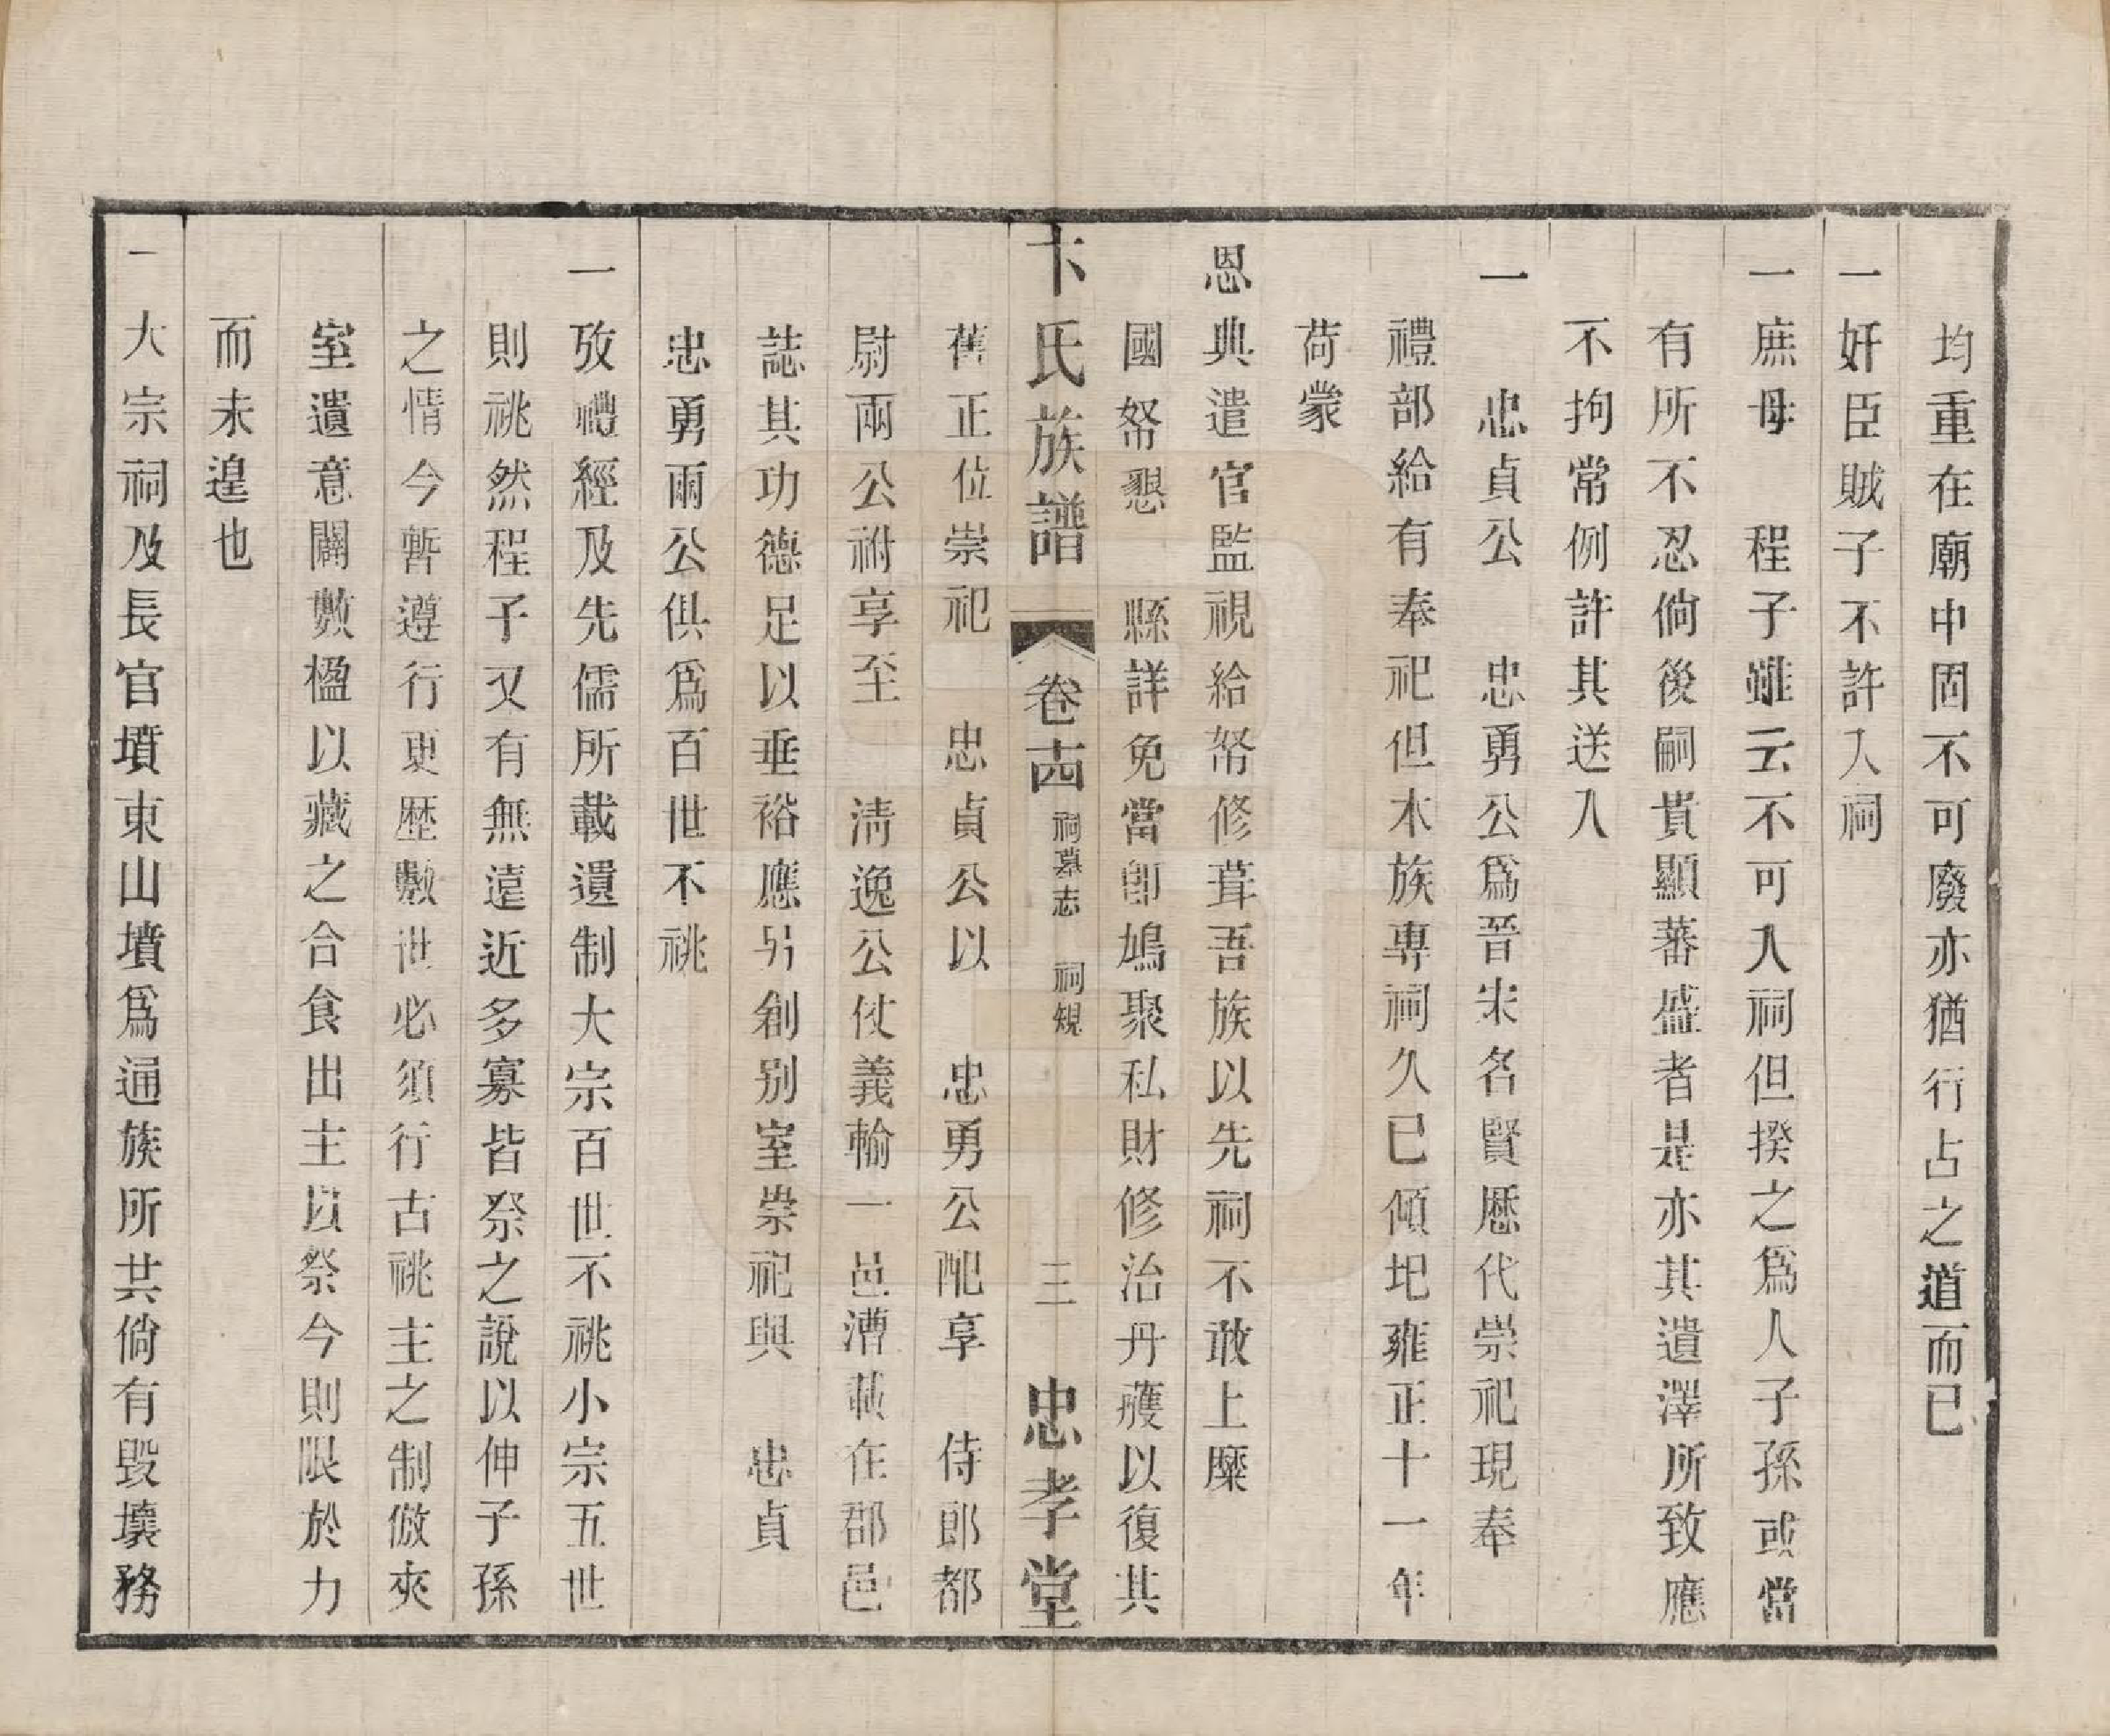 均重在廟中固不可廢亦猶行占之道而已
一奸臣賊子不許入祠
一庶母　程子雖云不可入祠但揆之爲人子孫或當
有所不忍倘後嗣貴顯蕃盛者是亦其遺澤所致應
不拘常例許其送入
一　忠貞公　忠勇公爲晉宋名賢歷代崇祀現奉
禮部給有奉祀但本族專祠久已傾圯雍正十一年
荷蒙
恩典遣官監視給帑修葺吾族以先祠不敢上糜
國帑懇　縣詳免當卽鳩聚私財修治丹雘以復其
卞氏族譜　卷十四　祠墓志　祠規　三　忠孝堂
舊正位崇祀　忠貞公以　忠勇公配享　侍郎都
尉兩公祔享至　清逸公仗義輸一邑漕載在郡邑
誌其功德足以垂裕應另創别室崇祀與　忠貞
忠勇兩公俱爲百世不祧
一攷禮經及先儒所載遺制大宗百世不祧小宗五世
則祧然程子又有無遠近多寡皆祭之說以伸子孫
之情今暫遵行更歷數世必須行古祧主之制倣夾
室遺意闢數楹以藏之合食出主以祭今則限於力
而未遑也
一大宗祠及長官墳東山墳爲通族所共倘有毀壞務